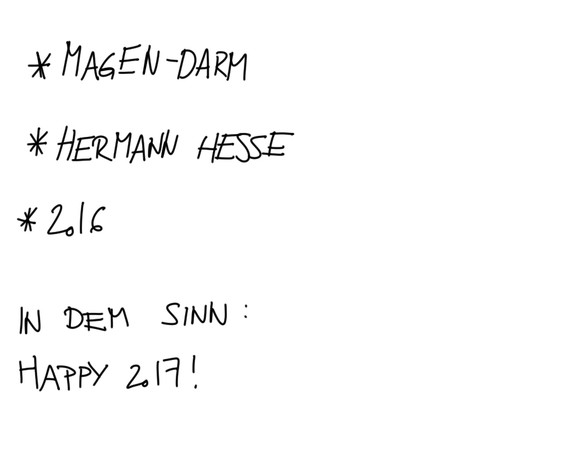 * MAGEN-DARM
* HERMANN HESSE
* 2016
IN DEM SINN:
HAPPY 2017!